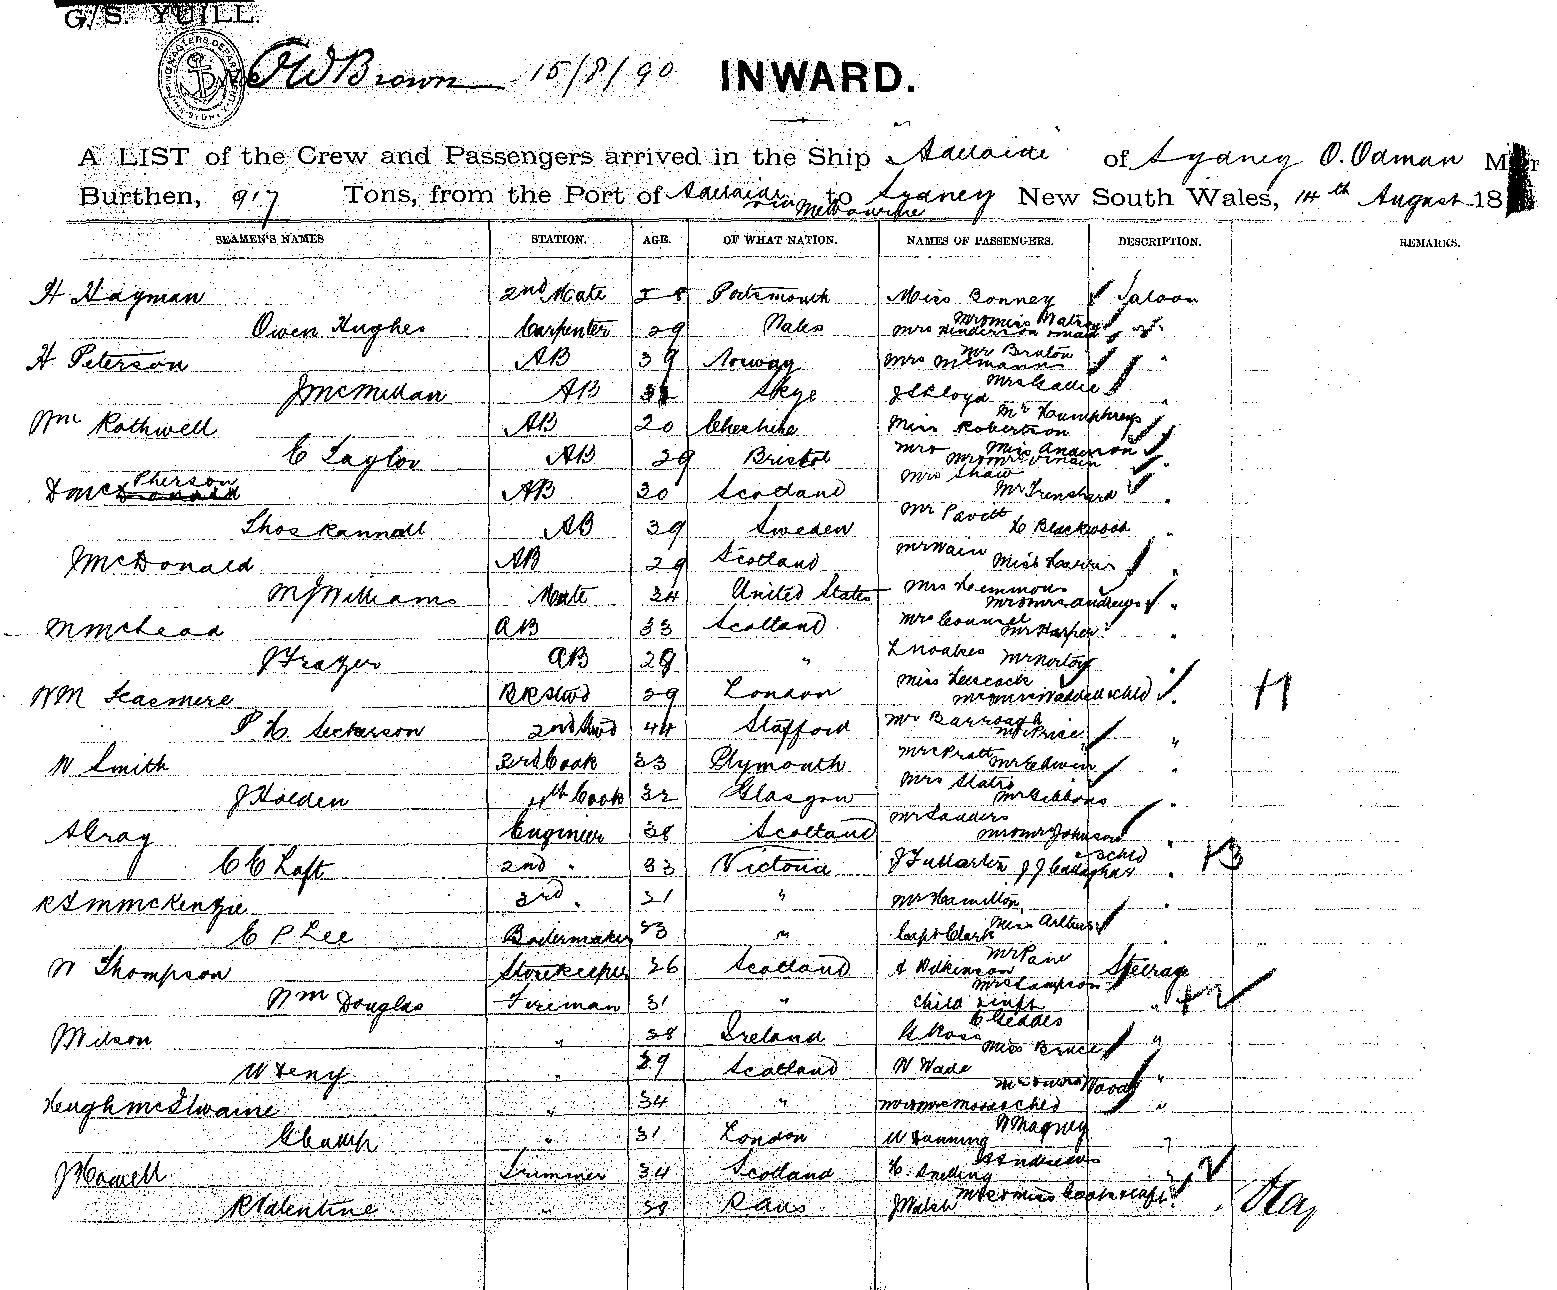 G. S. YUILL
J W Brown 15/8/90 INWARD.
A LIST of the Crew and Passengers arrived in the Ship Adelaide of Sydney O. Odman
Burthen, 917 Tons, from the Port of Adelaide via Melbourne to Sydney New South Wales, 14th August 18
SEAMEN'S NAMES STATION. AGE. OF WHAT NATION. NAMES OF PASSENGERS. DESCRIPTION. REMARKS.
H Hayman 2nd Mate Portsmouth Miss Bonney Saloon
Owen Hughes Carpenter 29 Wales
H Peterson AB 39 Norway Mr Bruton
J McMillan AB Skye J S Lloyd
Wm Rothwell AB 20 Cheshire Miss Robertson Mr Humphreys
C Taylor AB 29 Bristol Miss Anderson
D McPherson AB 30 Scotland Mrs Shaw Mr Trenchard
Thos Rannall AB 39 Sweden Mr Pavitt H Blackwood
J McDonald AB 29 Scotland Mr Wain Miss Harris
M J Williams Mate 34 United States Mrs Hemmons Mr & Mrs Andrews
M McLeod AB 33 Scotland Mrs Counsel Mr Harper
J Frazer AB 28 " L Noakes Mr Norton
Wm Seasmere BR Stwd 29 London Miss Leacock Mr & Mrs Waddell & child 11
P. H. Seckerson 2nd Stwd 44 Stafford Mr Barrough Mr Price "
W Smith 3rd Cook 33 Plymouth Mrs Pratt Mr Edwin "
J Holden 4th Cook 32 Glasgow Mrs Slater Mr Gibbons "
A Gray Engineer 38 Scotland Mr Sanders Mr & Mrs Johnson & child "
C C Taft 2nd " 33 Victoria J Fullarton J J Gallaghar " 13
R S M McKenzie 3rd " 21 " Mr Hamilton "
C P Lee Boilermaker 23 " Capt Clark Miss Arthur "
W Thompson Storekeeper 26 Scotland A Wilkinson Mr Pane Steerage
Wm Douglas Fireman 31 " Mrs Sampson child & inft "
J Wilson " 28 Ireland A Ross C Geddes "
W Deny " 29 Scotland W Wade Miss Bruce "
Hugh McIlwaine " 34 " Mr & Mrs Moses & child Mr & Mrs Woods "
C Camp " 31 London W Dunning W Magney "
J Howell Trimmer 34 Scotland H. Snelling Andrews
R Valentine " 38 J Walsh